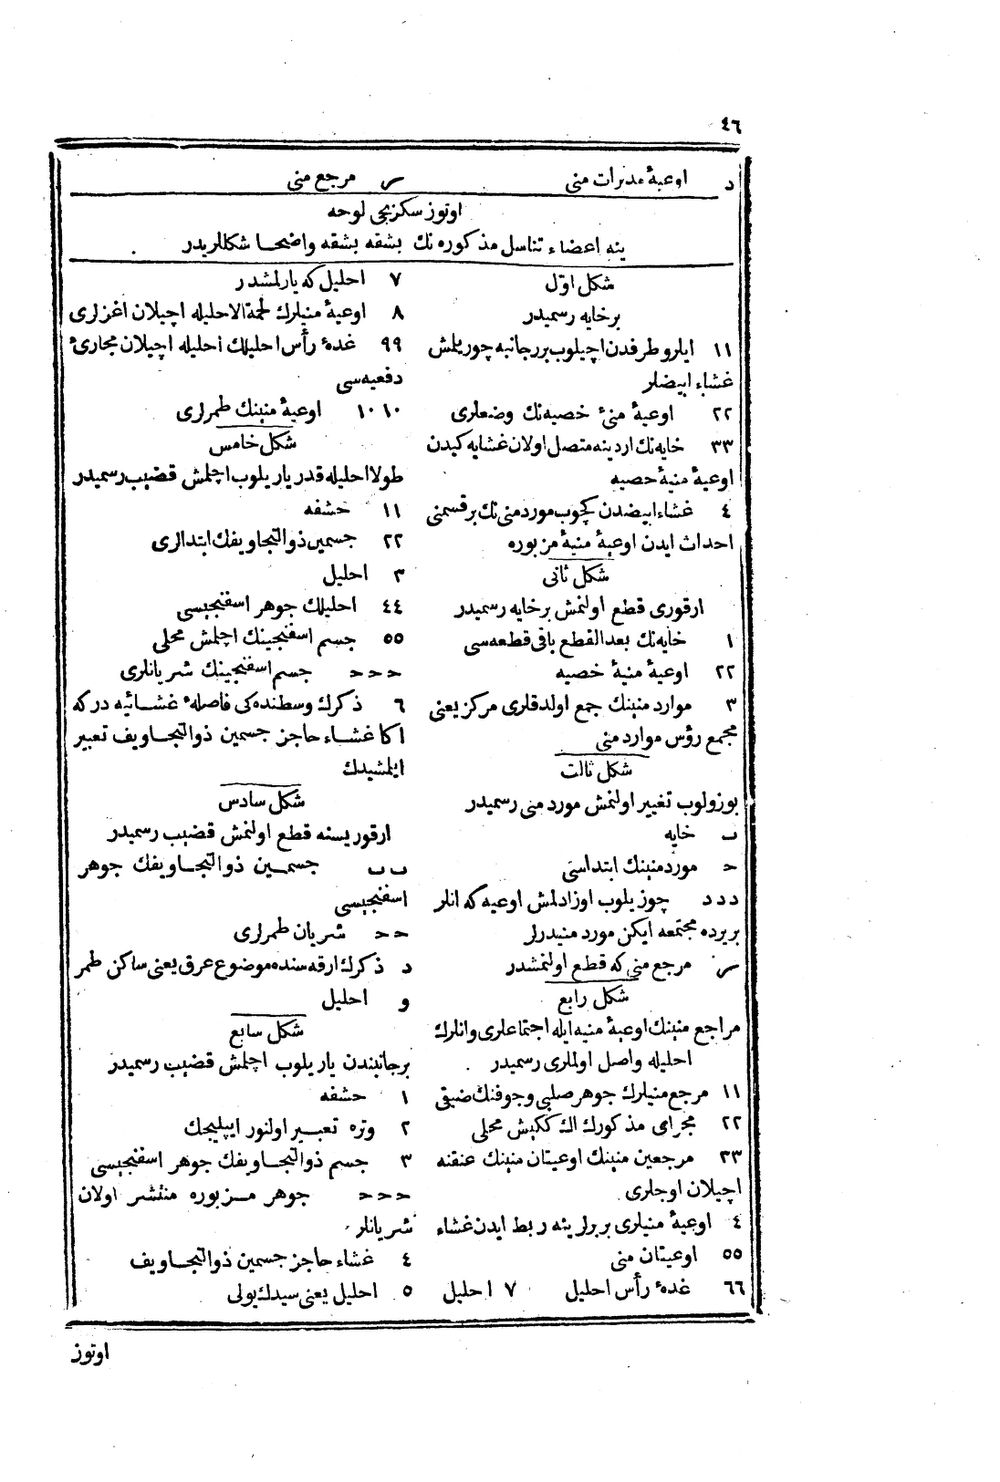 ٤٦
د اوعیهٔ مدّرات منی ص مرجع منی
اوتوز سکزنجی لوحه
ینه اعضاء تناسل مذکوره نك بشقه بشقه واضحا شکللریدر
شکل اوّل
برخایه رسمیدر
١١ ایلرو طرفدن اچیلوب بررجانبه چوریلمش
غشاء ابیضلر
٢٢ اوعیهٔ منیٔ خصیه نك وضعلری
٣٣ خایه نك اردینه متصل اولان غشایه کیدن
اوعیهٔ منیهٔ خصیه
٤ غشاء ابیضدن کچوب مورد منی نك برقسمنی
احداث ایدن اوعیهٔ منیهٔ مزبوره
شکل ثانی
ارقوری قطع اولنمش برخایه رسمیدر
١ خایه نك بعد القطع باقی قطعه سی
٢٢ اوعیهٔ منیهٔ خصیه
٣ موارد منینك جمع اولدقلری مرکز یعنی
مجمع رؤس موارد منی
شکل ثالث
بوزولوب تغییر اولنمش مورد منی رسمیدر
ب خایه
ح مورد منینك ابتداسی
د د د چوزیلوب اوزادلمش اوعیه که انلر
بریرده مجتمعه ایکن مورد منیدرلر
ص مرجع منی که قطع اولنمشدر
شکل رابع
مراجع منینك اوعیهٔ منیه ایله اجتماعلری وانلرك
احلیله واصل اولملری رسمیدر
١١ مرجع منیلرك جوهر صلبی وجوفنك ضیقی
٢٢ مجرای مذکورك اك ککیش محلی
٣٣ مرجعین منینك اوعیتان منینك عنقنه
اچیلان اوجلری
٤ اوعیهٔ منیلری بربرلرینه ربط ایدن غشاء
٥٥ اوعیتان منی
٦٦ غدهٔ رأس احلیل ٧ احلیل
٧ احلیل که یارلمشدر
٨ اوعیهٔ منیلرك لحمة الاحلیله اچیلان اغزلری
٩٩ غدهٔ رأس احلیلك احلیله اچیلان مجاریٔ
دفعیه سی
١٠١٠ اوعیهٔ منینك طمرلری
شکل خامس
طولا احلیله قدر یاریلوب اچلمش قضیب رسمیدر
١١ حشفه
٢٢ جسمین ذوالتجاویفك ابتدالری
٣ احلیل
٤٤ احلیلك جوهر اسفنجیسی
٥٥ جسم اسفنجینك اچلمش محلی
ح ح ح جسم اسفنجینك شریانلری
٦ ذکرك وسطنده کی فاصلهٔ غشائیه در که
اکا غشاء حاجز جسمین ذوالتجاویف تعبیر
ایلمشیدك
شکل سادس
ارقوریسنه قطع اولنمش قضیب رسمیدر
ب ب جسمین ذوالتجاویفك جوهر
اسفنجیسی
ح ح شریان طمرلری
د ذکرك ارقه سنده موضوع عرق یعنی ساکن طمر
و احلیل
شکل سابع
برجانبندن یاریلوب اچلمش قضیب رسمیدر
١ حشفه
٢ وتره تعبیر اولنور ایپلیجك
٣ جسم ذوالتجاویفك جوهر اسفنجیسی
ح ح ح جوهر مزبوره منتشر اولان
شریانلر
٤ غشاء حاجز جسمین ذوالتجاویف
٥ احلیل یعنی سیدك یولی
اوتوز